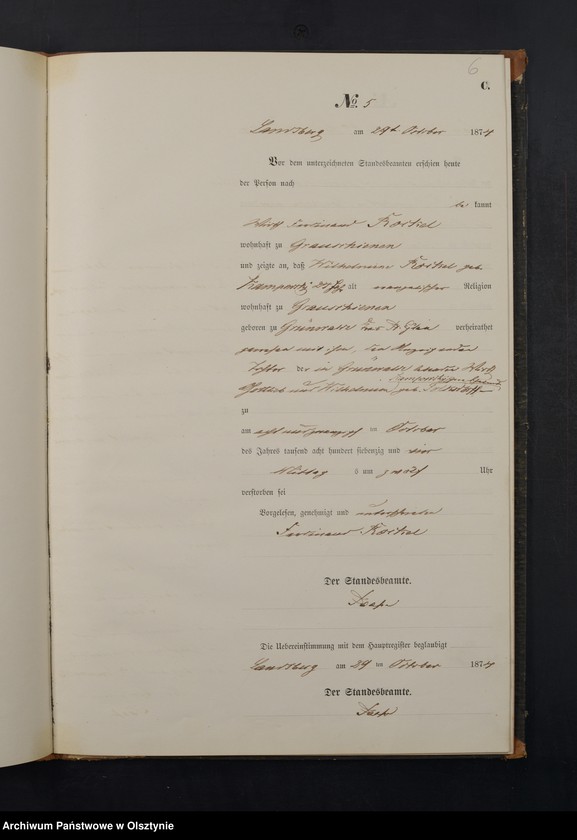 6
C.
No. 5
Landsberg am 29ten October 1874
Vor dem unterzeichneten Standesbeamten erschien heute
der Person nach
be kannt
Wirth Ferdinand Koschel
wohnhaft zu Grauschienen
und zeigte an, daß Wilhelmine Koschel geb.
alt evangelischer Religion
wohnhaft zu Grauschienen
geboren zu Grünwalde Kreis Pr. Eylau verheirathet
gewesen mit ihm, dem Anzeigenden
Tochter der in Grünwalde Wirth
Gottlieb und Wilhelmine geb.
zu
am acht und zwanzigsten October
des Jahres tausend acht hundert siebenzig und vier
Mittag s um zwölf Uhr
verstorben sei
Vorgelesen, genehmigt und unterschrieben
Ferdinand Koschel
Der Standesbeamte.
Die Uebereinstimmung mit dem Hauptregister beglaubigt
Landsberg am 29 ten October 1874
Der Standesbeamte.
Archiwum Państwowe w Olsztynie